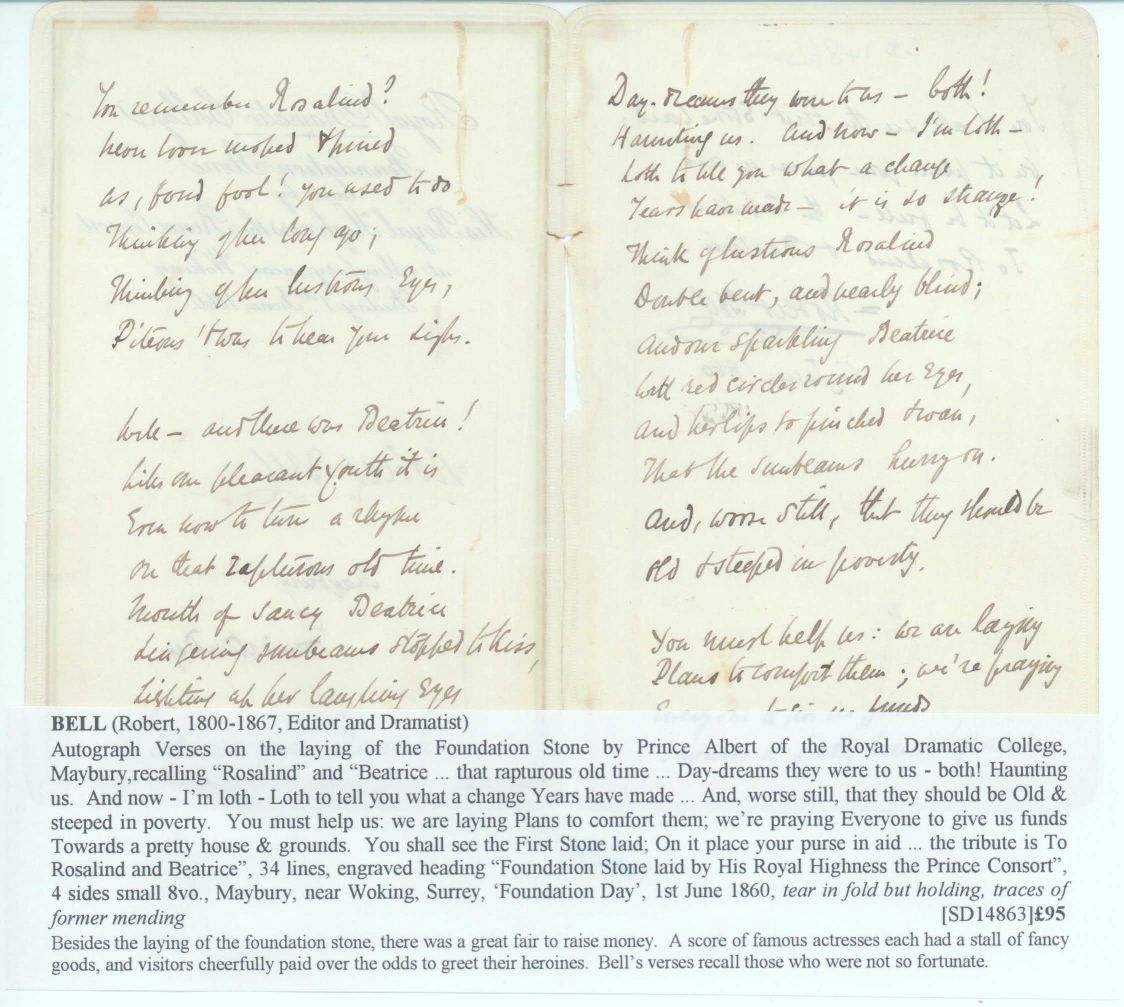 You remember Rosalind?
never lover moped & pined
as, fond fool! you used to do,
Thinking of her long ago;
Thinking of her lustrous Eyes,
Piteous 'twas to hear your sighs.
Well – and there was Beatrice!
Like our pleasant youth it is
Even now to turn a rhyme
on that rapturous old time.
Mouth of saucy Beatrice
Lingering sunbeams stopped to kiss,
Lighting up her laughing Eyes
Day-dreams they were to us – both!
Haunting us. And now – I'm loth –
Loth to tell you what a change
Years have made – it is so strange!
Think of lustrous Rosalind
Double bent, and nearly blind;
And our sparkling Beatrice
With red circles round her Eyes,
And her lips so pinched & wan,
That the sunbeams hurry on.
And, worse still, that they should be
Old & steeped in poverty.
You must help us: we are laying
Plans to comfort them; we're praying
funds
BELL (Robert, 1800-1867, Editor and Dramatist)
Autograph Verses on the laying of the Foundation Stone by Prince Albert of the Royal Dramatic College,
Maybury,recalling “Rosalind” and “Beatrice ... that rapturous old time ... Day-dreams they were to us - both! Haunting
us. And now - I’m loth - Loth to tell you what a change Years have made ... And, worse still, that they should be Old &
steeped in poverty. You must help us: we are laying Plans to comfort them; we’re praying Everyone to give us funds
Towards a pretty house & grounds. You shall see the First Stone laid; On it place your purse in aid ... the tribute is To
Rosalind and Beatrice”, 34 lines, engraved heading “Foundation Stone laid by His Royal Highness the Prince Consort”,
4 sides small 8vo., Maybury, near Woking, Surrey, ‘Foundation Day’, 1st June 1860, tear in fold but holding, traces of
former mending [SD14863]£95
Besides the laying of the foundation stone, there was a great fair to raise money. A score of famous actresses each had a stall of fancy
goods, and visitors cheerfully paid over the odds to greet their heroines. Bell’s verses recall those who were not so fortunate.